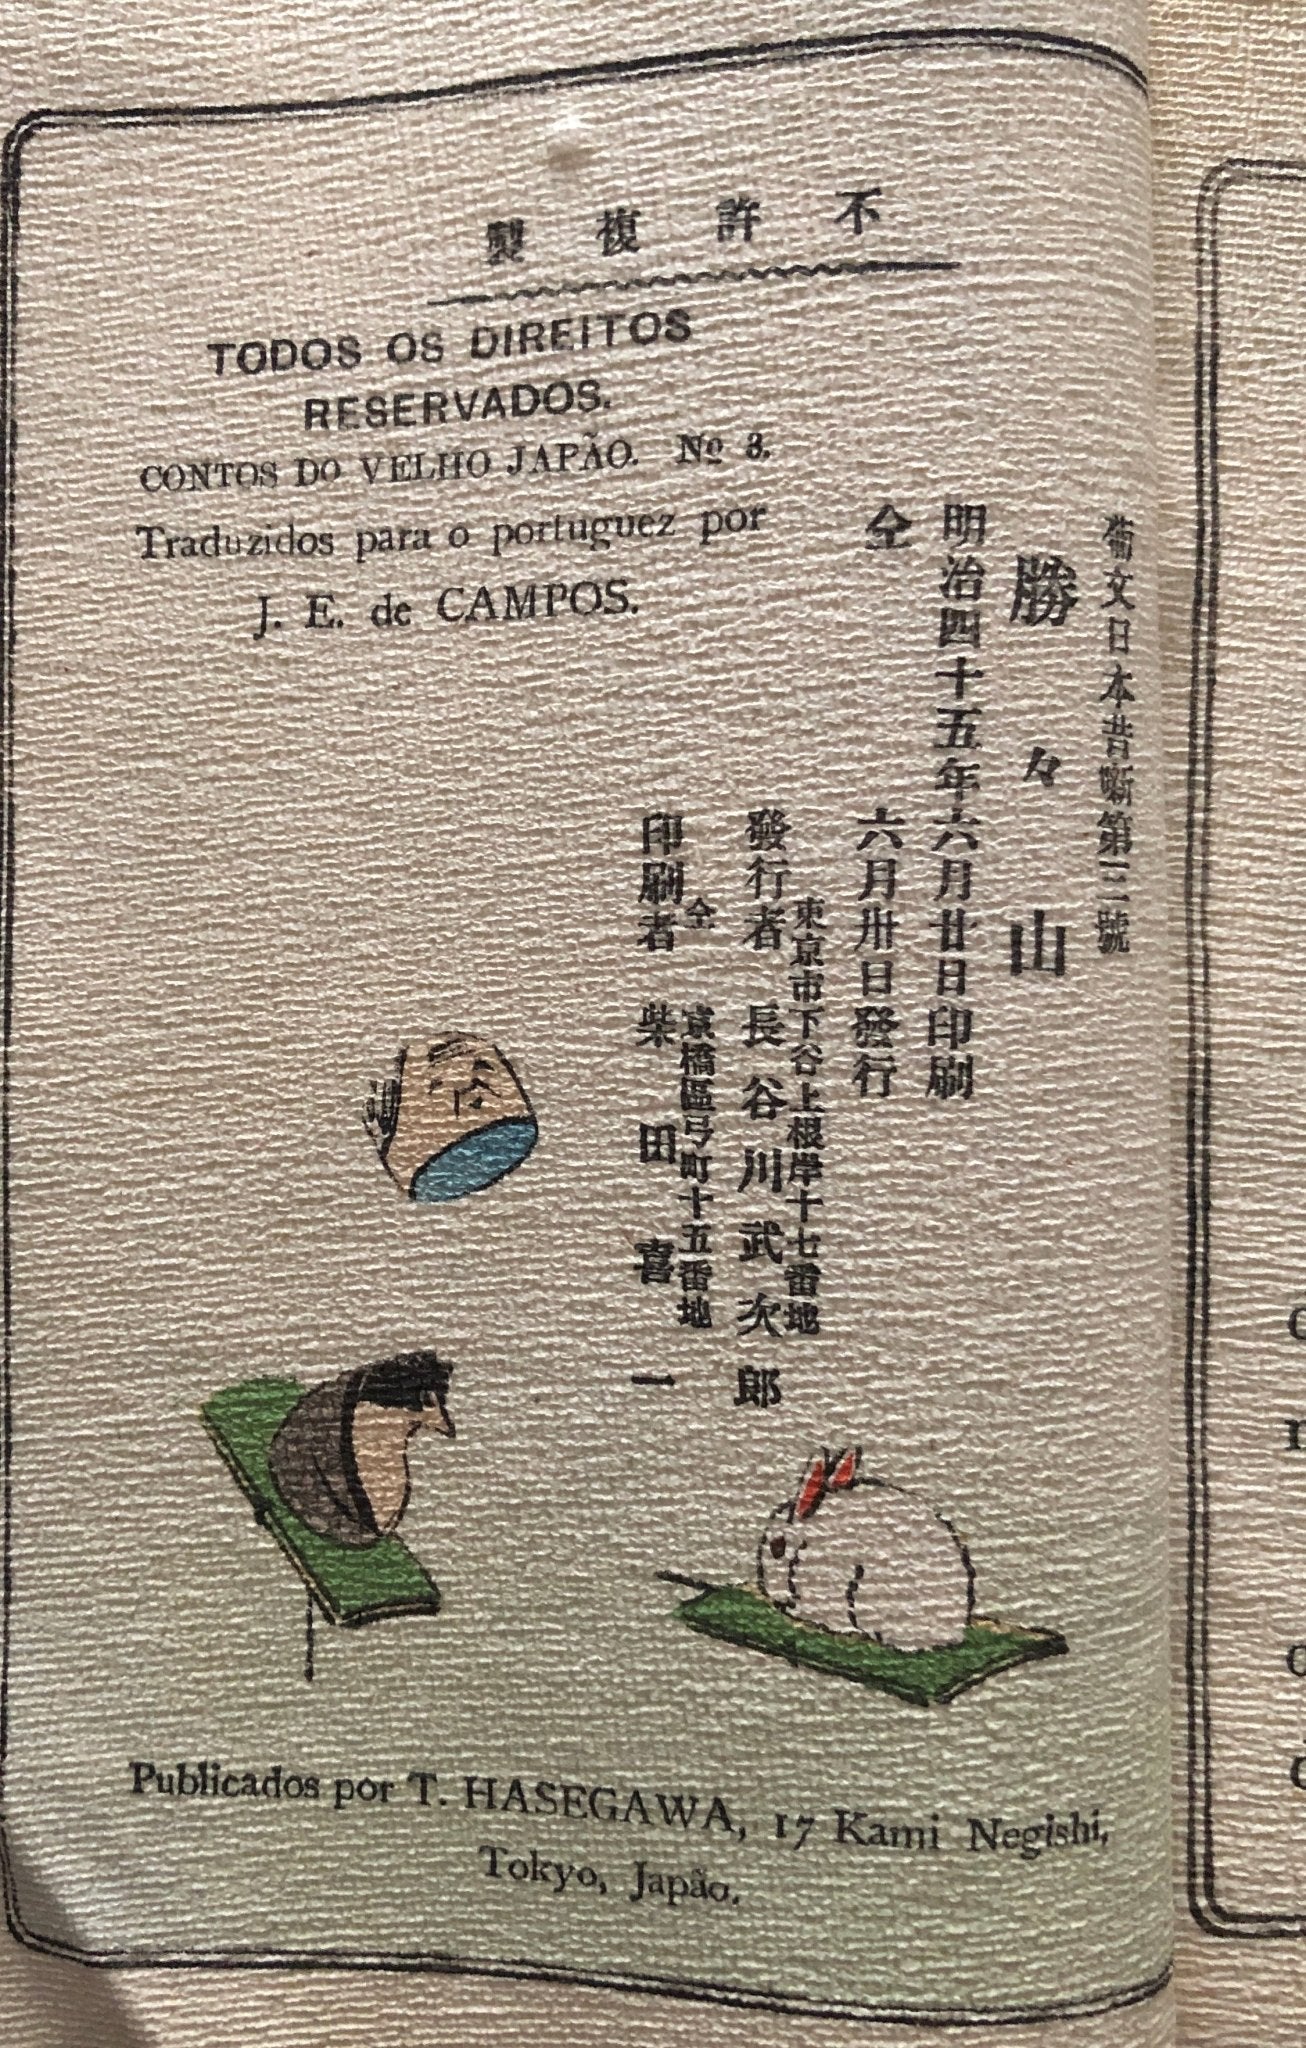 不許複製
TODOS OS DIREITOS
RESERVADOS.
CONTOS DO VELHO JAPÃO. Nº 3.
Traduzidos para o portuguez por
J. E. de CAMPOS.
葡文日本昔噺第三號
勝々山
明治四十五年六月廿日印刷
仝六月卅日發行
東京市下谷上根岸十七番地
發行者 長谷川武次郎
仝京橋區弓町十五番地
印刷者 柴田喜一
Publicados por T. HASEGAWA, 17 Kami Negishi,
Tokyo, Japão.